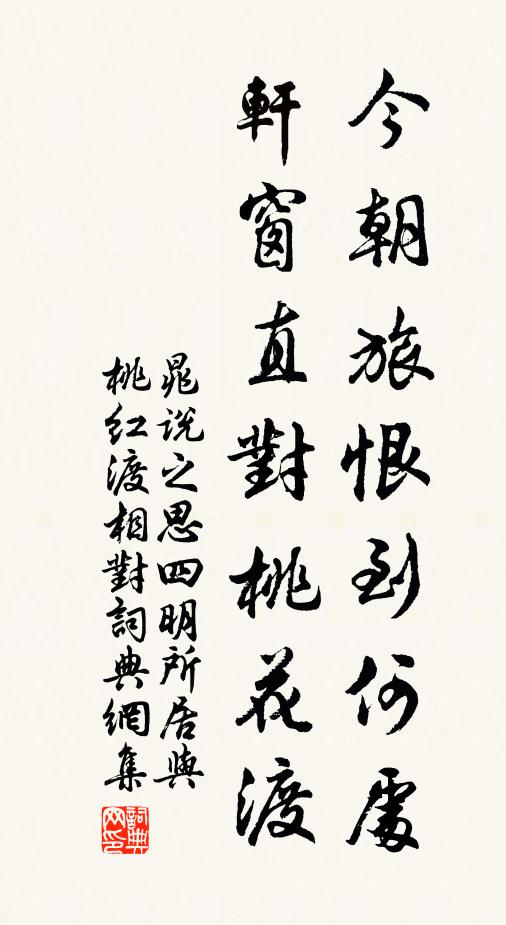 今朝旅恨到何處
軒窗直對桃花渡
晁说之思四明所居與
桃红渡相對詞典網集
詞典
网印